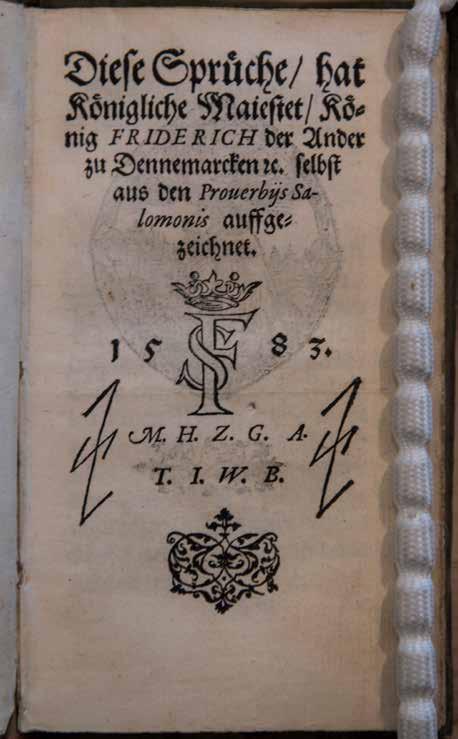 Diese Sprüche/ hat
Königliche Maiestet/ Kö-
nig FRIDERICH der Ander
zu Dennemarcken ꝛc. selbst
aus den Prouerbijs Sa-
lomonis auffge-
zeichnet.
FS
1583.
M. H. Z. G. A.
T. I. W. B.